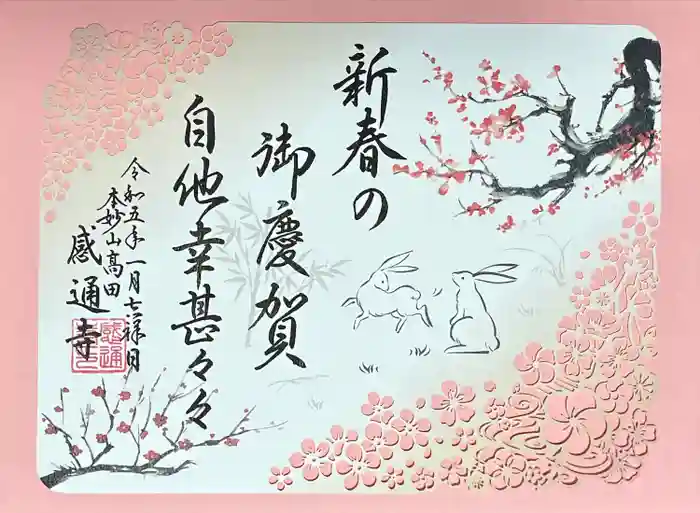 新春の
御慶賀
自他幸甚々々
令和五年一月七禄日
本妙山高田
感通寺
感通